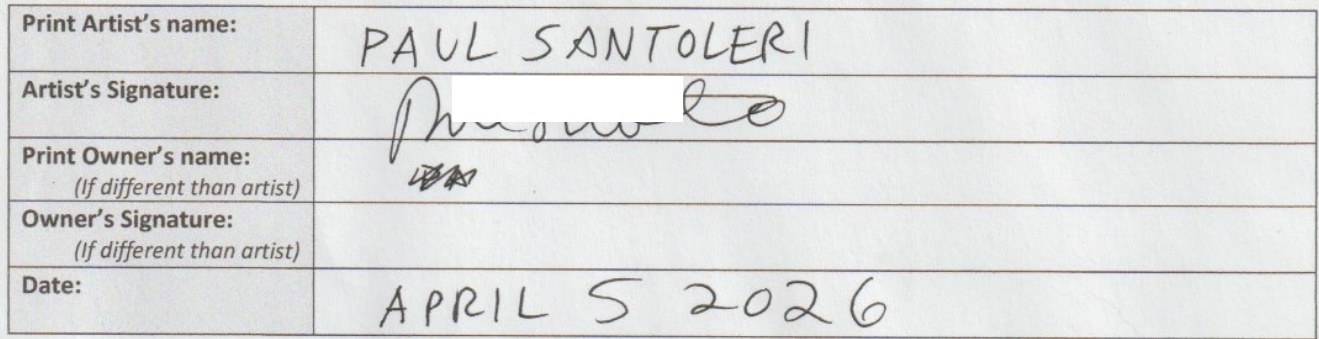 Print Artist's name: PAUL SANTOLERI
Artist's Signature:
Print Owner's name:
(If different than artist)
Owner's Signature:
(If different than artist)
Date: APRIL 5 2026